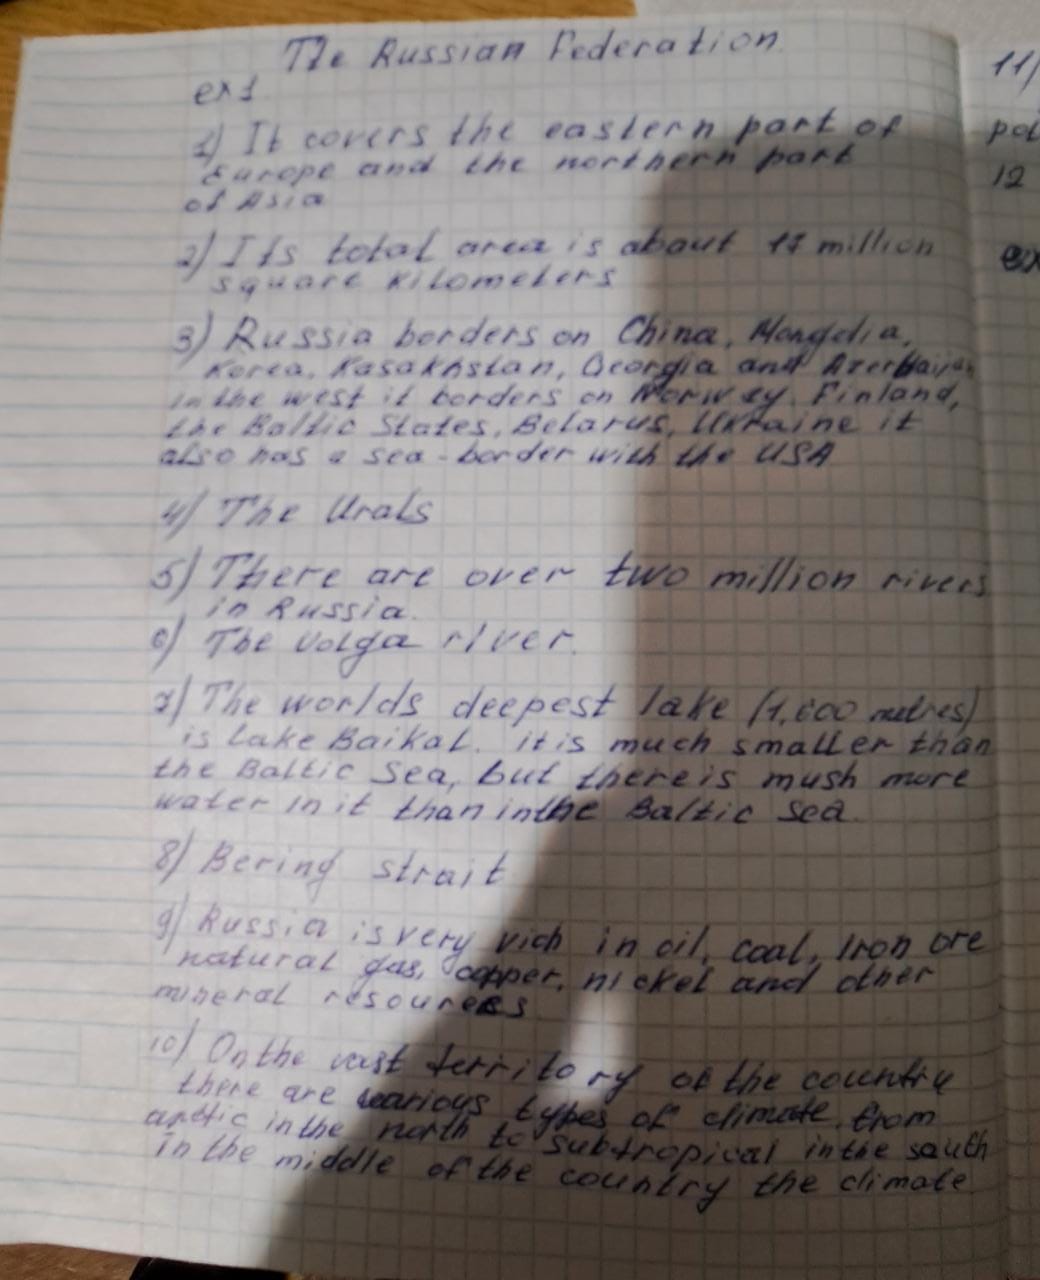 The Russian Federation.
ex1
1) It covers the eastern part of
Europe and the northern part
of Asia
2) Its total area is about 17 million
square kilometers
3) Russia borders on China, Mongolia,
Korea, Kasakhstan, Georgia and Azerbaijan
in the west it borders on Norway, Finland,
the Baltic States, Belarus, Ukraine it
also has a sea-border with the USA
4) The Urals
5) There are over two million rivers
in Russia.
6) The Volga river.
7) The worlds deepest lake (1,600 metres)
is Lake Baikal. it is much smaller than
the Baltic Sea, but there is mush more
water in it than in the Baltic Sea.
8) Bering strait
9) Russia is very rich in oil, coal, Iron ore
natural gas, copper, nickel and other
mineral resources
10) On the vast territory of the country
there are various types of climate, from
arctic in the north to subtropical in the south
In the middle of the country the climate
11)
12